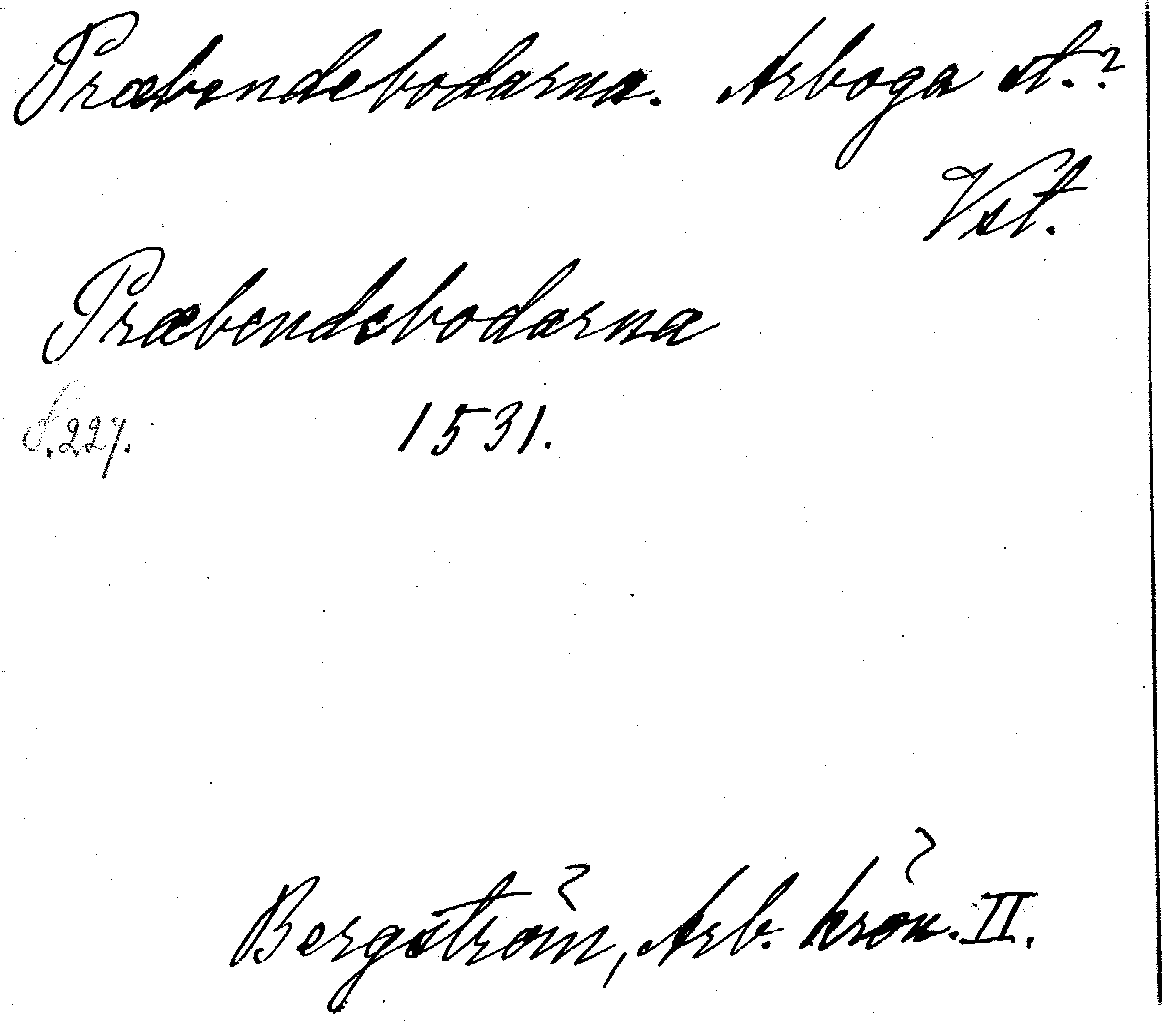 Præbendebodarna. Arboga st.?
Vst.
Præbendebodarna
S.227. 1531.
Bergström, Arb. krön. II.